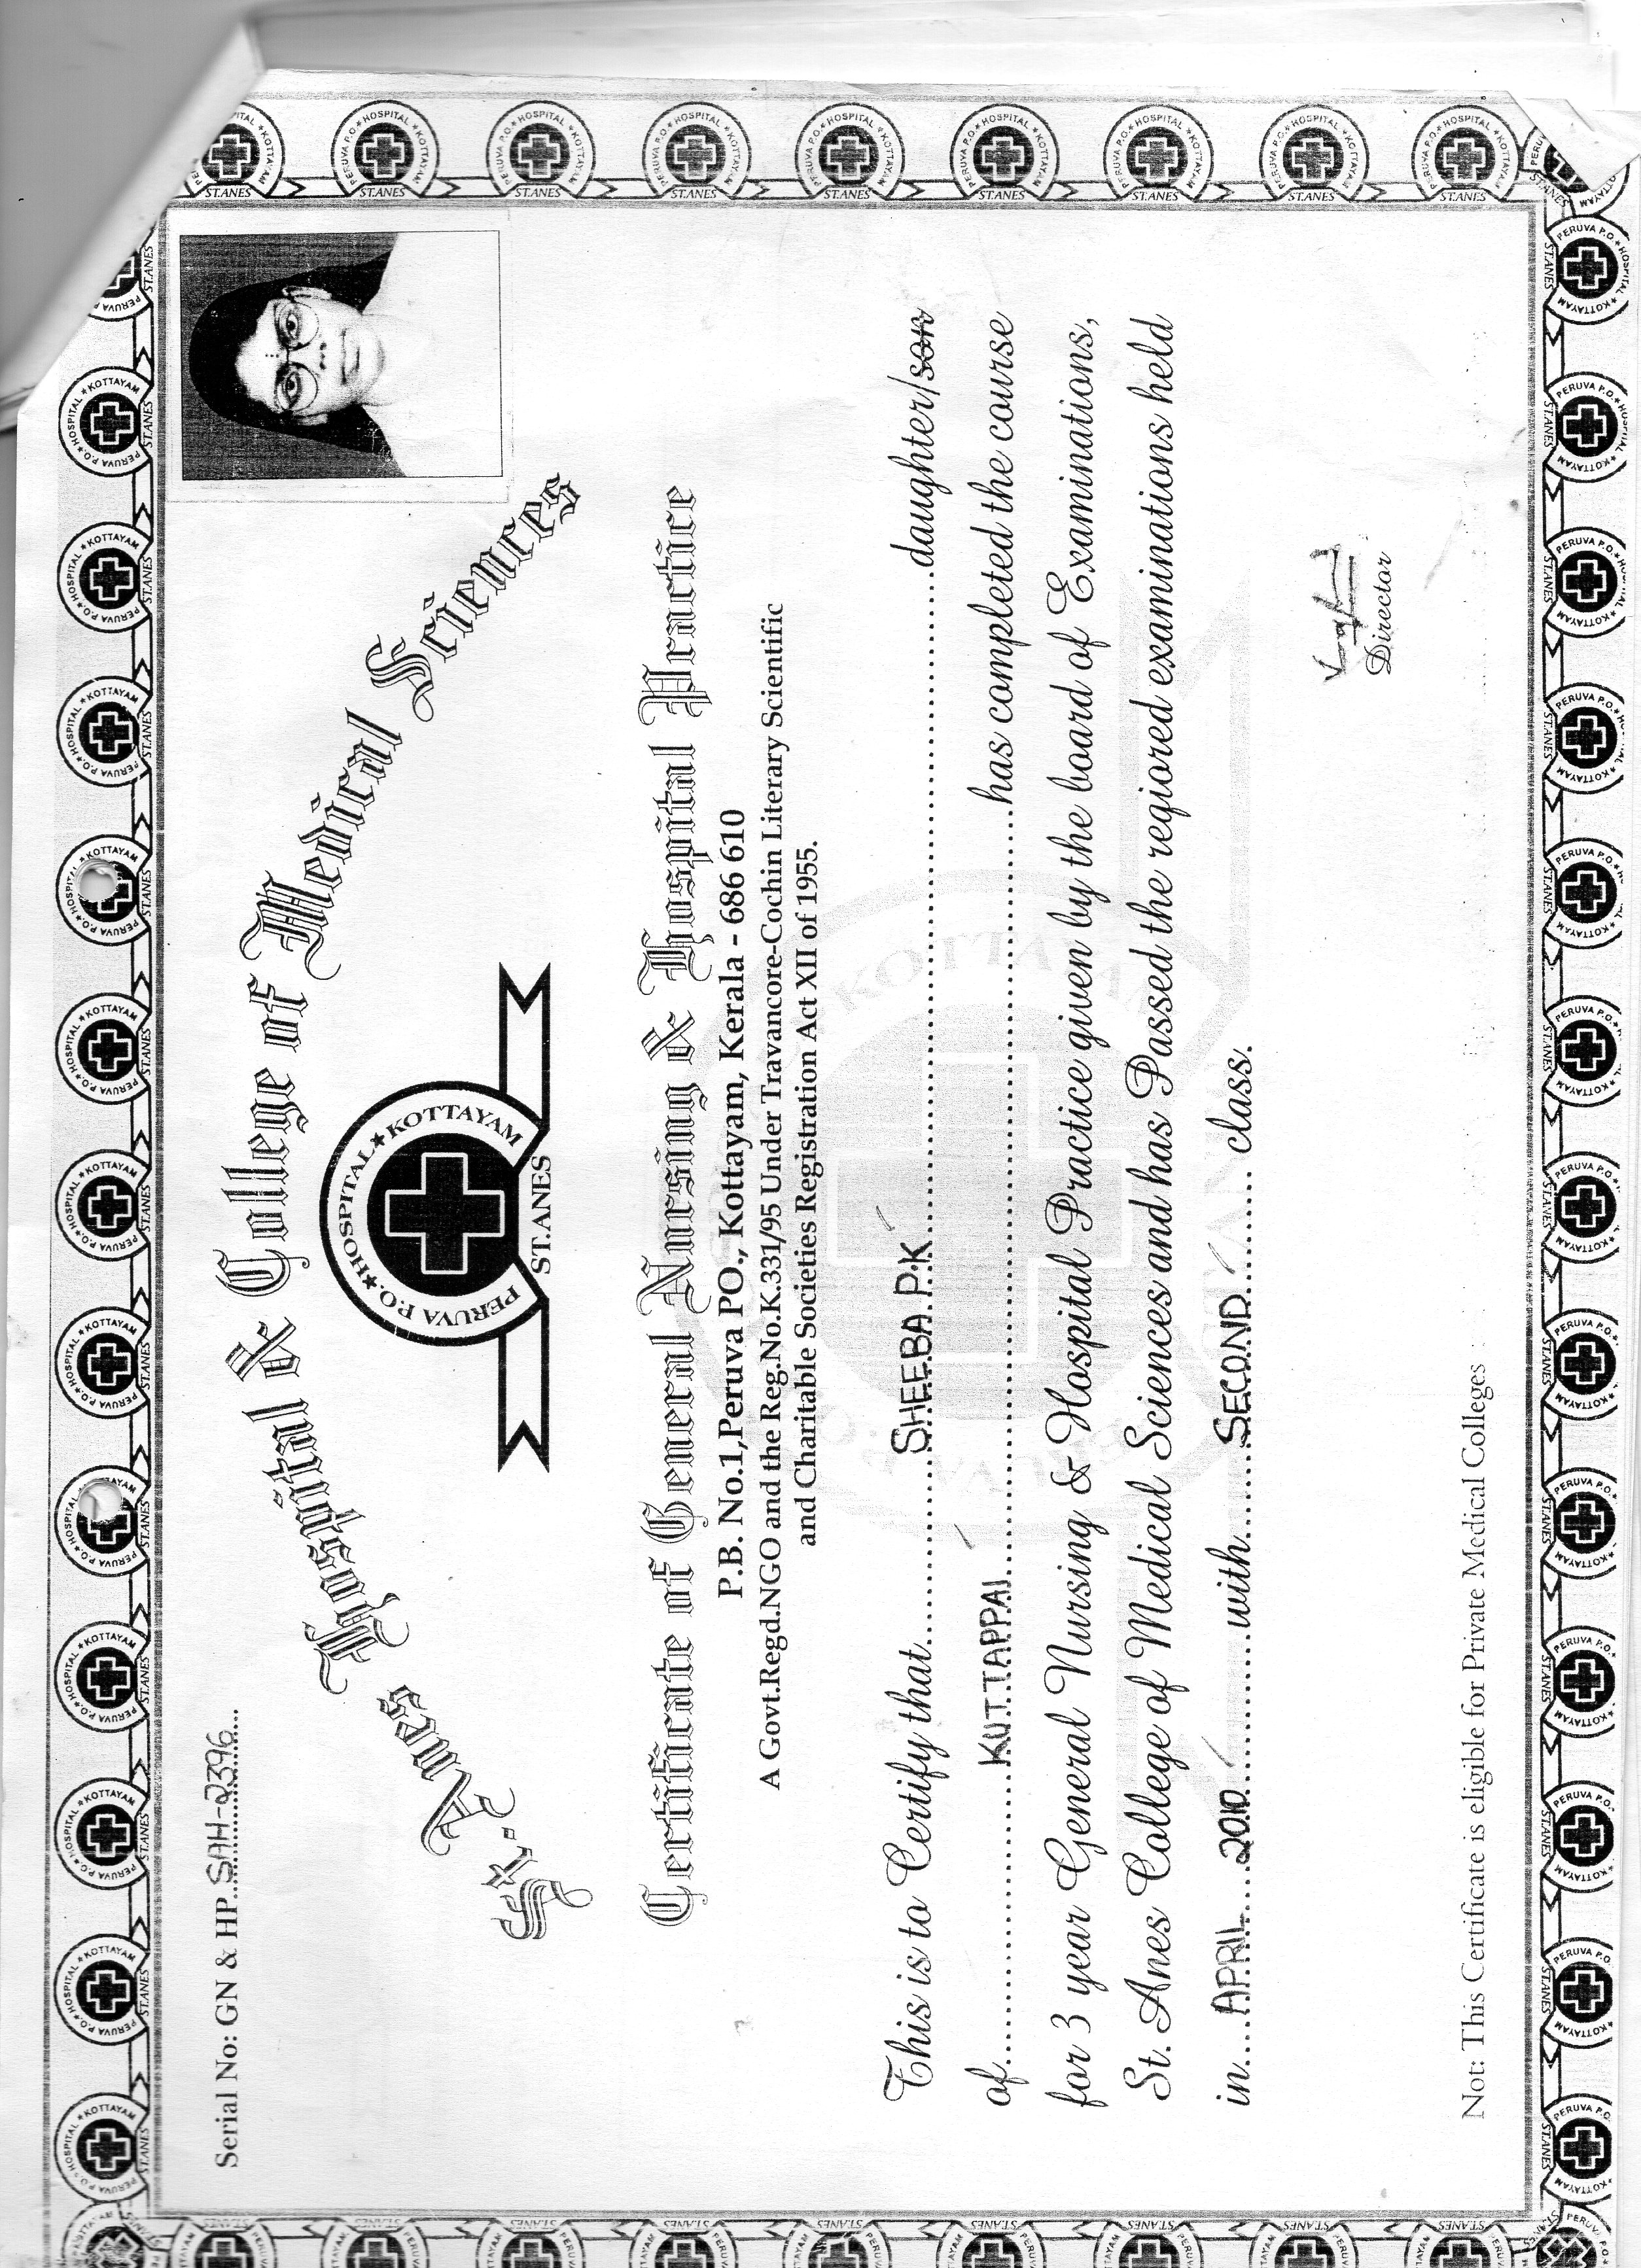 Serial No: GN & HP SAH-2396
St. Anes Hospital & College of Medical Sciences
PERUVA P.O.★HOSPITAL★KOTTAYAM
ST.ANES
Certificate of General Nursing & Hospital Practice
P.B. No.1,Peruva PO., Kottayam, Kerala - 686 610
A Govt.Regd.NGO and the Reg.No.K.331/95 Under Travancore-Cochin Literary Scientific
and Charitable Societies Registration Act XII of 1955.
This is to Certify that SHEEBA P.K daughter/son
of KUTTAPPAI has completed the course
for 3 year General Nursing & Hospital Practice given by the board of Examinations,
St. Anes College of Medical Sciences and has Passed the reqiored examinations held
in APRIL 2010 with SECOND class.
Director
Not: This Certificate is eligible for Private Medical Colleges